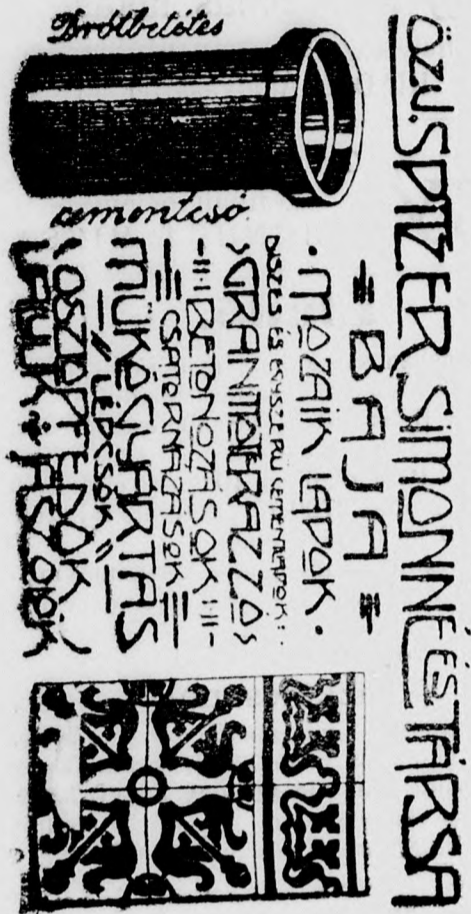 ÖZV. SPITZER SIMONNÉ ÉS TÁRSA
BAJA
MOZAIK LAPOK.
DISZES ÉS EGYSZERÜ CEMENTLAPOK
GRANITOTERAZZO
BETONOZÁSOK
CSATORNAZÁSOK
MÜKŐGYARTAS
LÉPCSŐK
Drótbetétes
cementcső.